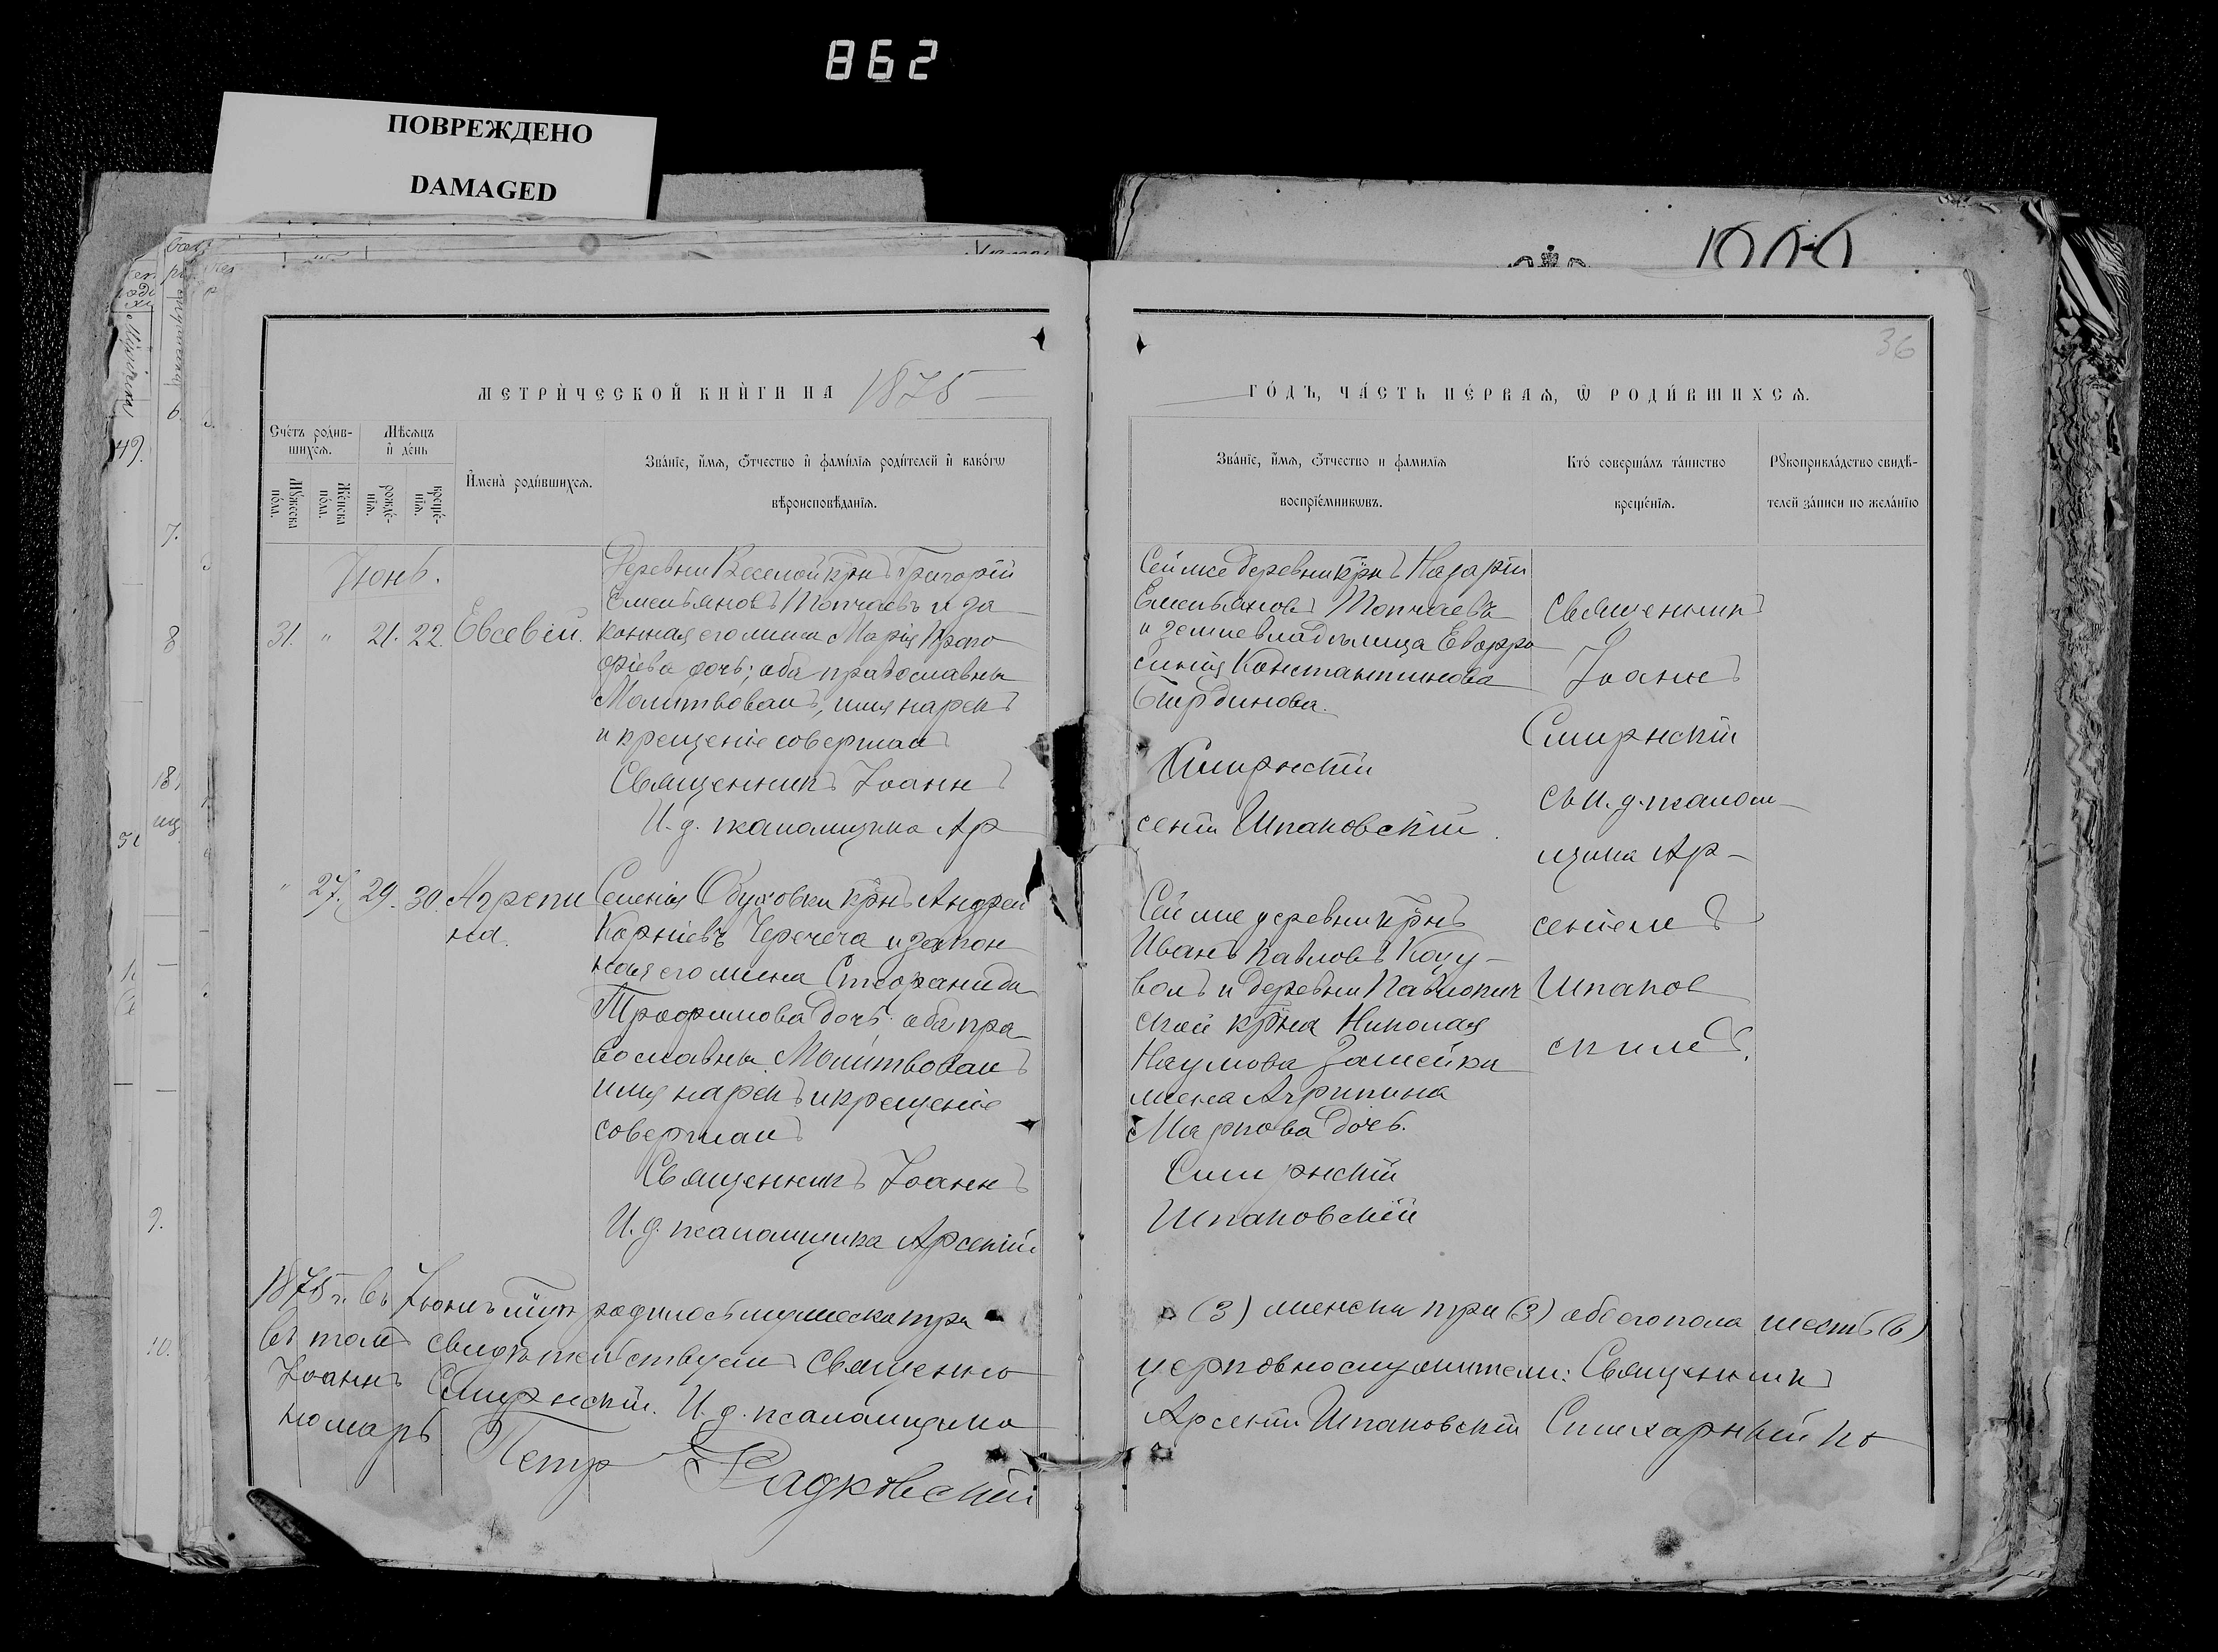 862
ПОВРЕЖДЕНО
DAMAGED
36
МЕТРИ́ЧЕСКОЙ КНИ́ГИ НА 1875
ГО́ДЪ, ЧА́СТЬ ПЕ́РВАѦ, Ѡ҆ РОДИ́ВШИХСѦ.
Сче́тъ роди́в-
шихсѧ.
Мꙋ́жеска по́ла.
Же́нска по́ла.
Мѣ́сѧцъ
и҆ де́нь
рожде́-
нїѧ.
креще́-
нїѧ.
И҆мена̀ роди́вшихсѧ.
Зва́нїе, и҆́мѧ, ѻ҆́тчество и҆ фами́лїѧ роди́телей и҆ како́гѡ
вѣроисповѣ́данїѧ.
Зва́нїе, и҆́мѧ, ѻ҆́тчество и фамилїѧ
воспрїе́мникѡвъ.
Кто̀ соверша́лъ та́инство
креще́нїѧ.
Рꙋкоприкла́дство свидѣ́-
телей за́писи по жела́нїю
Іюнь.
31. " 21. 22. Евсевій.
Деревни Веселой кр̃нъ Григорій
Емельяновъ Топчаевъ и за
конная его жена Марія Григо
рьева дочь; оба православны
Молитвовалъ, имя нарекъ
и крещеніе совершалъ
Священникъ Іоаннъ
И. д. псаломщика Ар
Сей же деревни кр̃нъ Назарій
Емельяновъ Топчаевъ
и землевладѣлица Евфро
синія Константинова
Смирнскій
сеній Шпаковскій
Священникъ
Іоаннъ
Смирнскій
съ и. д. псалом
щика Ар-
сеніемъ
Шпаков
скимъ.
" 27. 29. 30. Агрепи
на.
Селенія Обуховки кр̃нъ Андрей
Корніевъ Черечеча и закон
ная его жена Стефанида
Трофимова дочь: оба пра
вославны. Молитвовалъ
имя нарекъ и крещеніе
совершалъ
Священникъ Іоаннъ
И. д. псаломщика Арсеній
Сей же деревни кр̃нъ
Иванъ Павловъ
и деревни
кр̃на Николая
Наумова
жена Агрипина
Маркова дочь.
Смирнскій
Шпаковскій
1875 г. въ Іюнѣ родилось мужеска три (3) женска три (3) обоего пола шесть (6)
въ томъ свидѣтельствуемъ священно церковнослужители: Священникъ
Іоаннъ Смирнскій. И. д. псаломщика Арсеній Шпаковскій Стихарный по
номарь Петр Радковскій